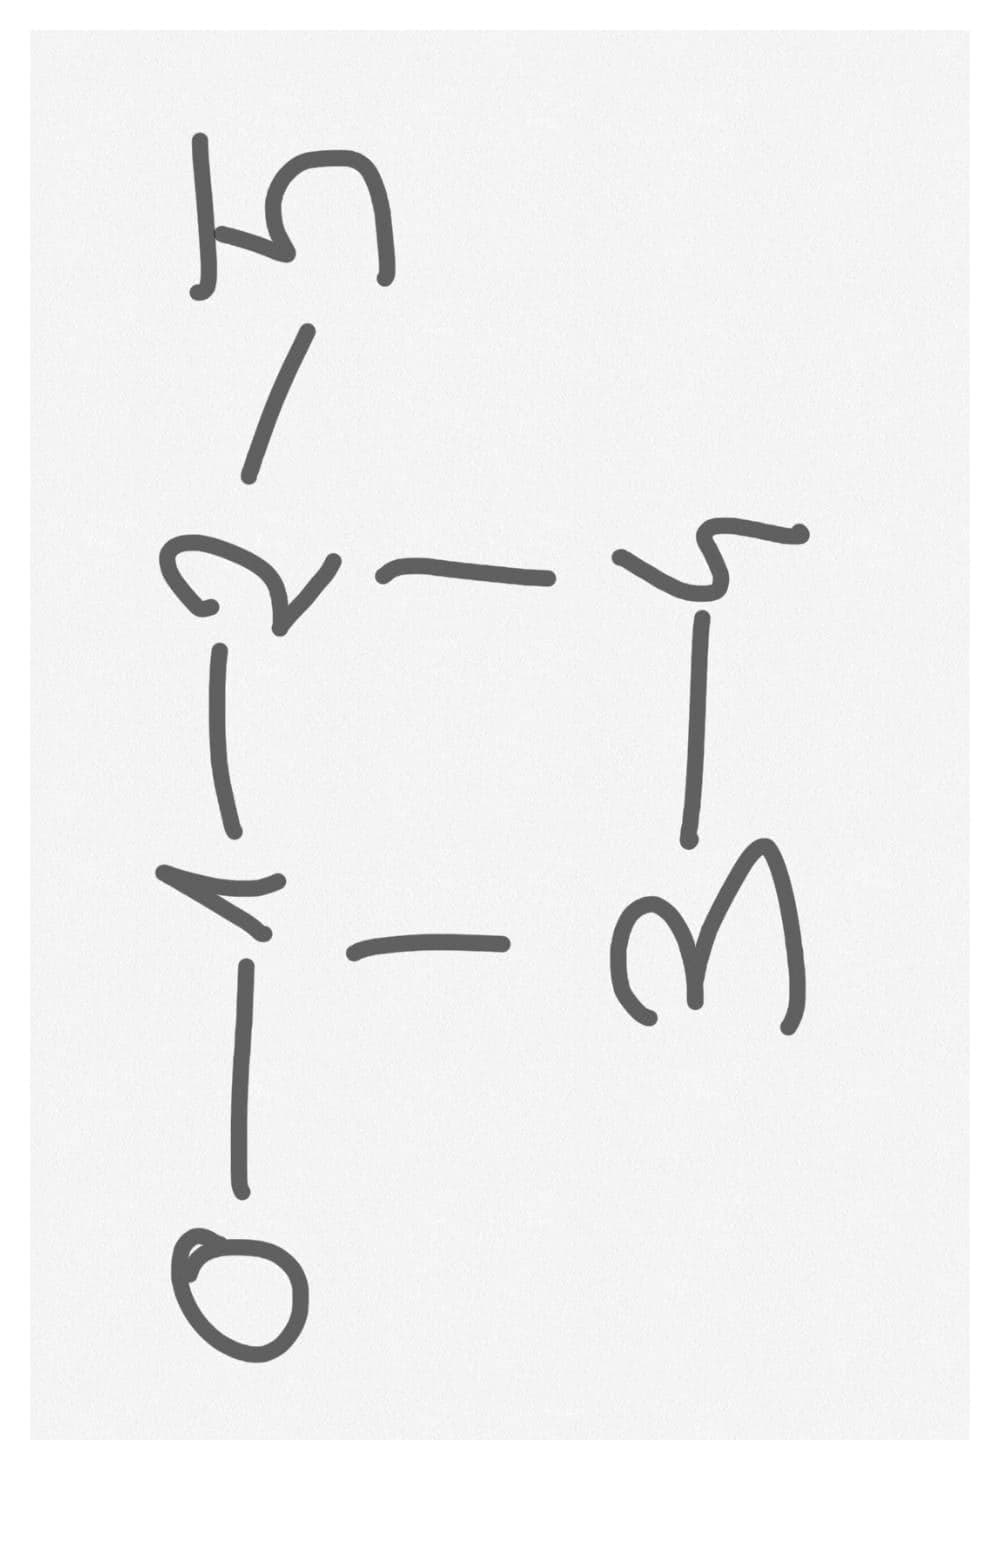 0 1 2 5
3 4